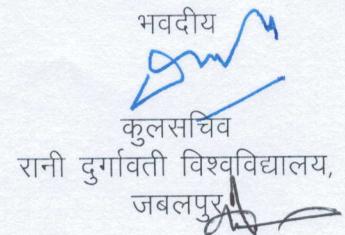 भवदीय
कुलसचिव
रानी दुर्गावती विश्वविद्यालय,
जबलपुर